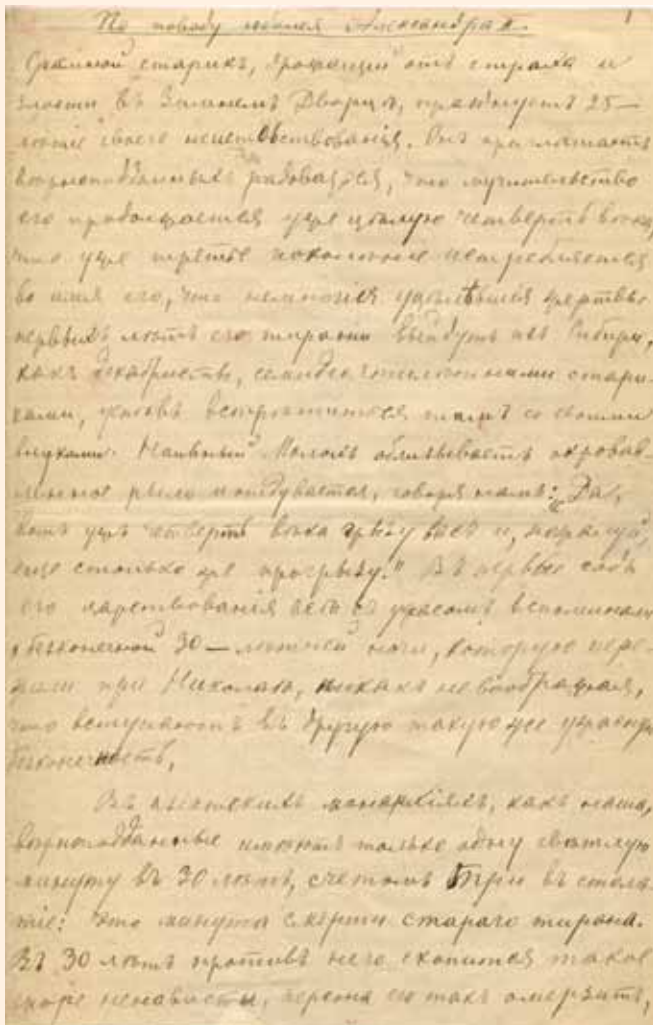 По поводу юбилея Александра II. 1
старикъ, дрожащій отъ страха и
злости въ Зимнемъ Дворцѣ, празднуетъ 25—
лѣтіе своего неистовствованія. Онъ приглашаетъ
вѣрноподданныхъ радоваться, что мучительство
его продолжается уже цѣлую четверть вѣка,
что уже третье поколѣніе истребляется
во имя его, что немногія уцѣлѣвшія жертвы
первыхъ лѣтъ его тираніи выйдутъ изъ Сибири,
какъ декабристы, семидесятилѣтними стари-
ками, успѣвъ встрѣтиться тамъ со своими
внуками. Наивный Молохъ облизываетъ окровав-
ленное рыло и отдувается, говоря намъ: „Да,
вотъ ужъ четверть вѣка грызу васъ и, пожалуй,
еще столько же прогрызу." Въ первые годы
его царствованія всѣ съ ужасомъ вспоминали
о безконечной 30—лѣтней ночи, которую пере-
жили при Николаѣ, никакъ не воображая,
что вступаютъ въ другую такую же ужасную
безконечность.
Въ монархіяхъ, какъ наша,
вѣрноподданные имѣютъ только одну свѣтлую
минуту въ 30 лѣтъ, счетомъ три въ столѣ-
тіе: это минута смерти стараго тирана.
Въ 30 лѣтъ противъ него скопится такое
море ненависти, персона его такъ омерзитъ,